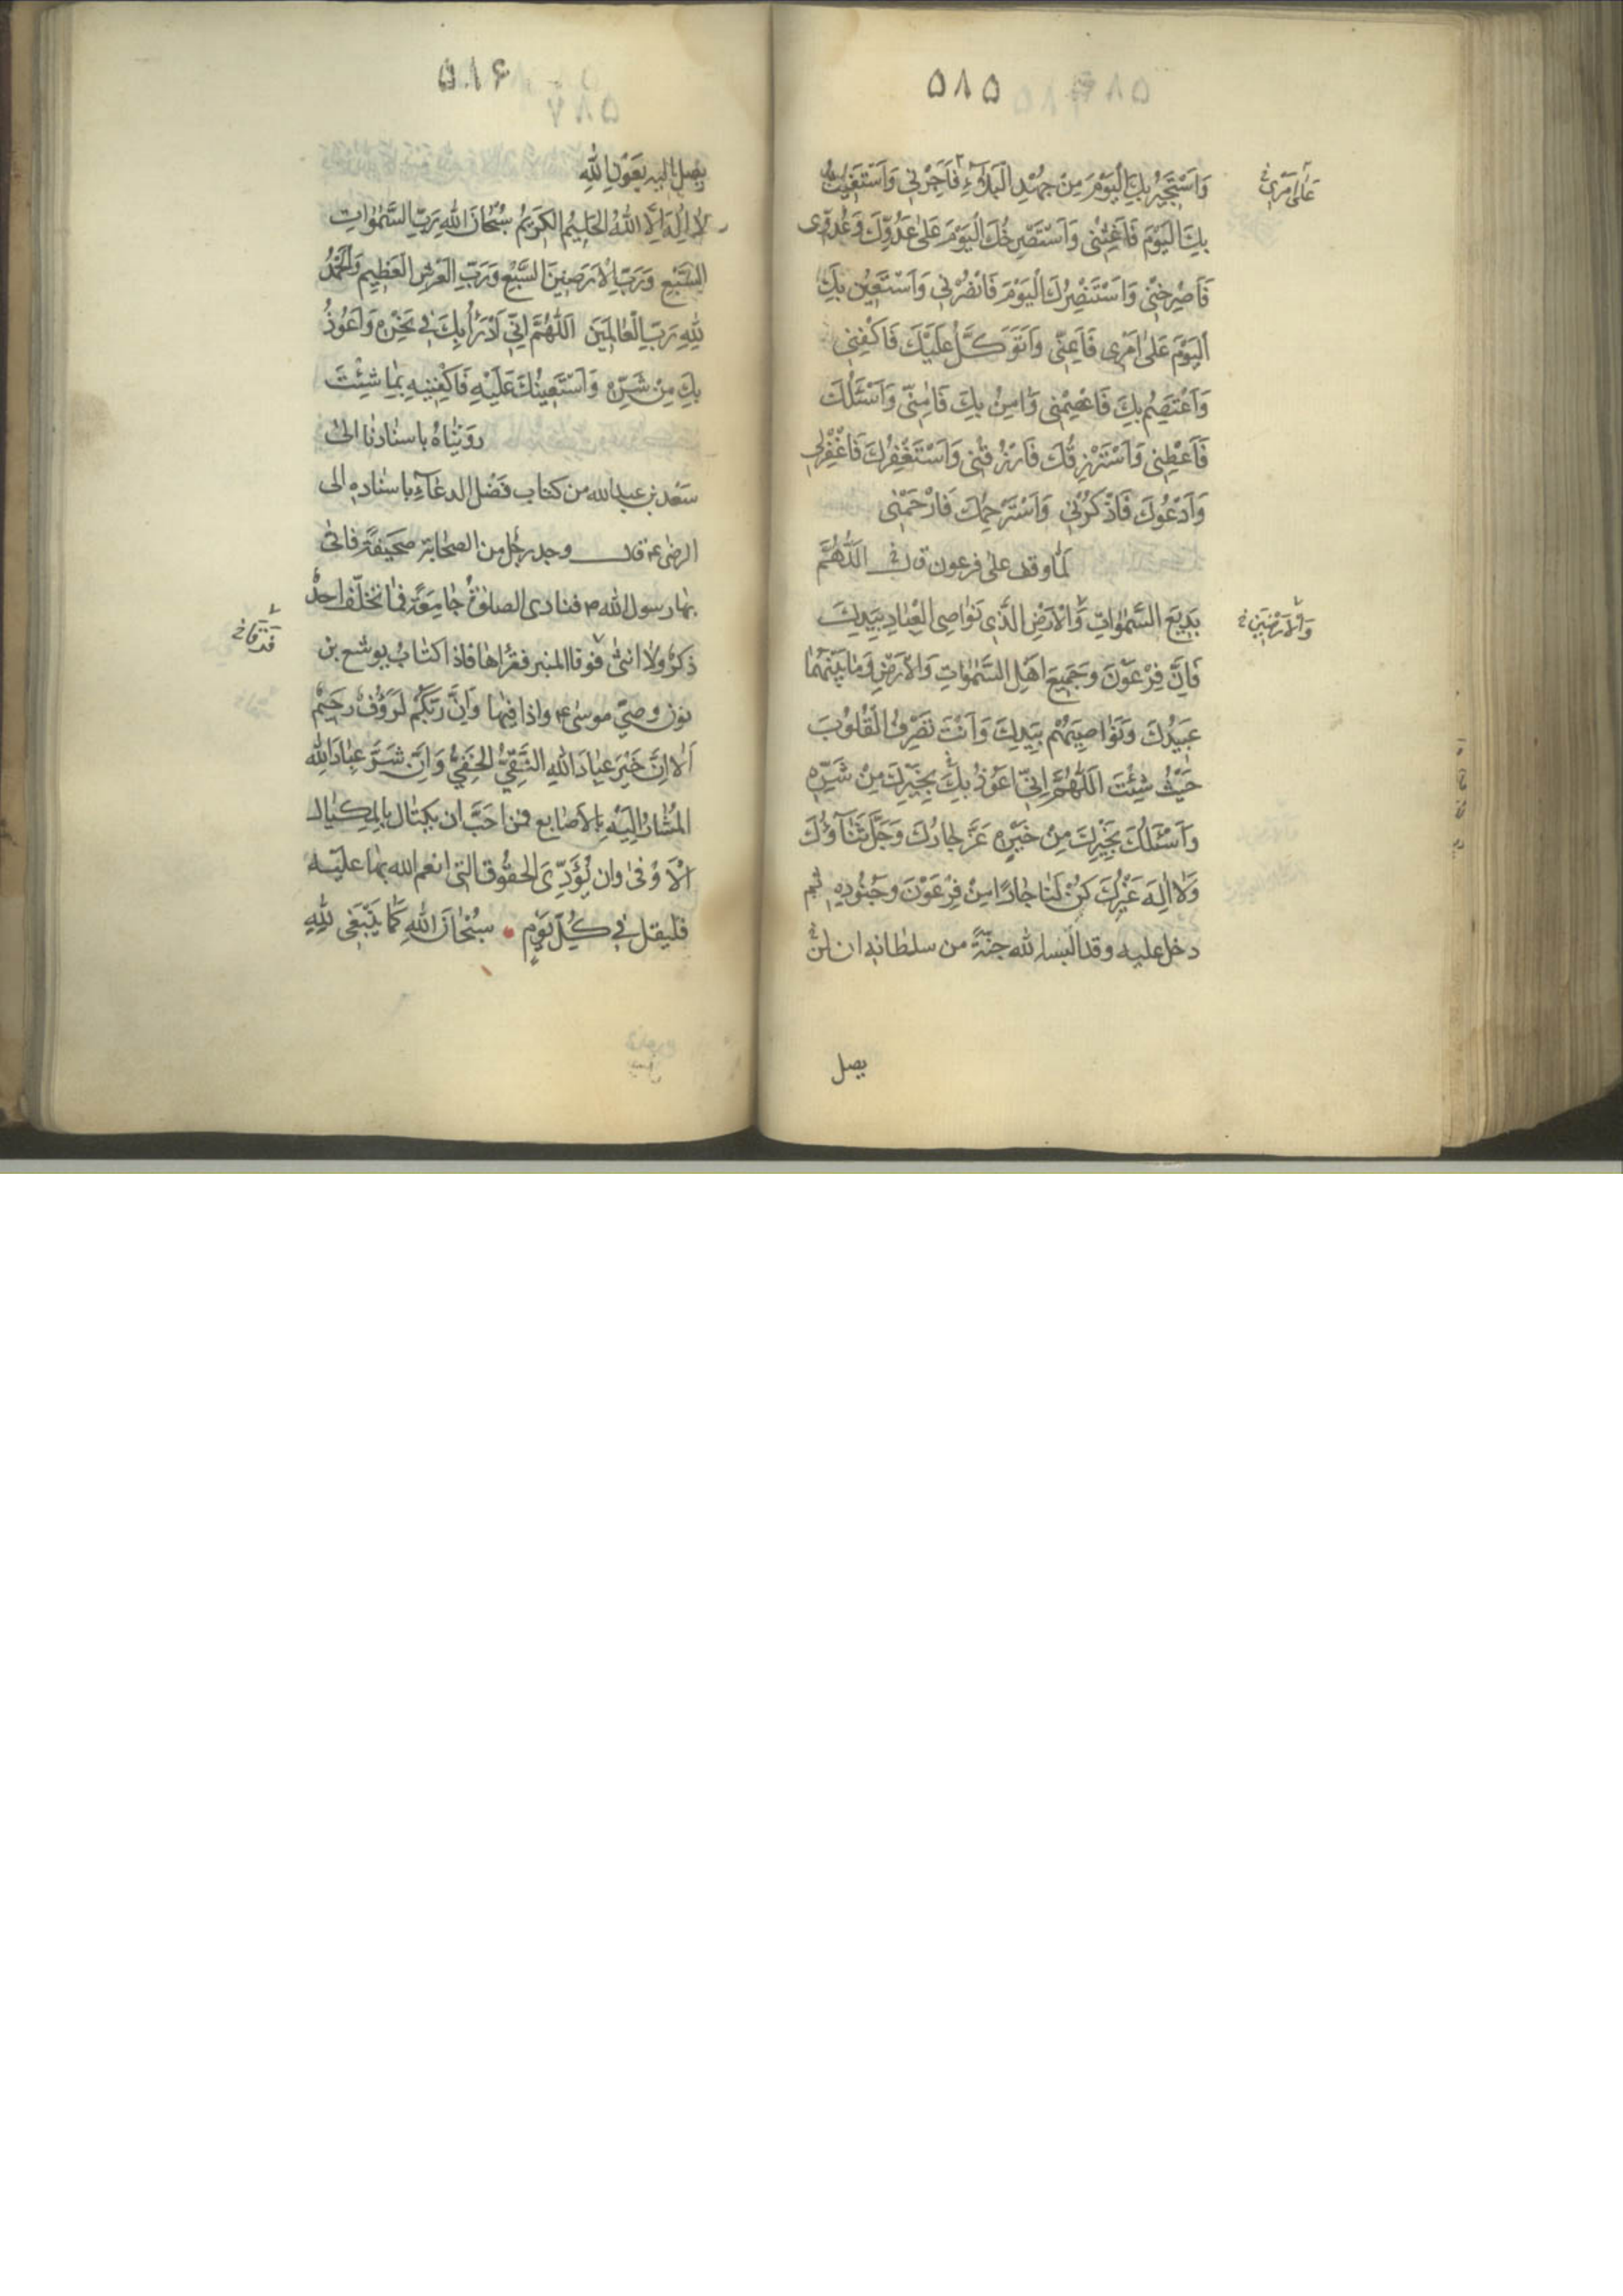 ۵۸۵
وَاَسْتَجِيرُ بِكَ الْيَوْمَ مِنْ جَهْدِ الْبَلَآءِ فَاَجِرْنِي وَاَسْتَغِيثُ
بِكَ الْيَوْمَ فَاَغِثْنِي وَاَسْتَصْرِخُكَ الْيَوْمَ عَلىٰ عَدُوِّكَ وَعَدُوِّى
فَاَصْرِخْنِي وَاَسْتَنْصِرُكَ الْيَوْمَ فَانْصُرْنِي وَاَسْتَعِينُ بِكَ
الْيَوْمَ عَلىٰ اَمْرِى فَاَعِنِّي وَاَتَوَكَّلُ عَلَيْكَ فَاكْفِنِي
وَاَعْتَصِمُ بِكَ فَاعْصِمْنِي وَاٰمِنُ بِكَ فَاٰمِنِّي وَاَسْئَلُكَ
فَاَعْطِنِي وَاَسْتَرْزِقُكَ فَارْزُقْنِي وَاَسْتَغْفِرُكَ فَاغْفِرْلِي
وَاَدْعُوكَ فَاذْكُرْنِي وَاَسْتَرْحِمُكَ فَارْحَمْنِي
لمّا وقف على فرعون اَللّٰهُمَّ
بَدِيعَ السَّمٰوَاتِ وَالْاَرْضِ الَّذِي نَوَاصِي الْعِبَادِ بِيَدِكَ
فَاِنَّ فِرْعَوْنَ وَجَمِيعَ اَهْلِ السَّمٰوَاتِ وَالْاَرْضِ وَمَا بَيْنَهُمَا
عَبِيدُكَ وَنَوَاصِيهِمْ بِيَدِكَ وَاَنْتَ تَصْرِفُ الْقُلُوبَ
حَيْثُ شِئْتَ اَللّٰهُمَّ اِنِّي اَعُوذُ بِكَ بِخَيْرِكَ مِنْ شَرِّهِ
وَاَسْئَلُكَ بِخَيْرِكَ مِنْ خَيْرِهِ عَزَّ جَارُكَ وَجَلَّ ثَنَآؤُكَ
وَلَا اِلٰهَ غَيْرُكَ كُنْ لَنَا جَارًا مِنْ فِرْعَوْنَ وَجُنُودِهِ ثم
دخل عليه وقد البسه الله جنّةً من سلطانه ان لن
يصل
عَلىٰ اَمْرِي خ
وَالْاَرَضِينَ خ
۵۸۶
۵۸۷
يصل اليه بعَوْنِ اللّٰهِ
لَا اِلٰهَ اِلَّا اللّٰهُ الْحَلِيمُ الْكَرِيمُ سُبْحَانَ اللّٰهِ رَبِّ السَّمٰوَاتِ
السَّبْعِ وَرَبِّ الْاَرَضِينَ السَّبْعِ وَرَبِّ الْعَرْشِ الْعَظِيمِ وَالْحَمْدُ
لِلّٰهِ رَبِّ الْعَالَمِينَ اَللّٰهُمَّ اِنِّي اَدْرَأُ بِكَ فِي نَحْرِهِ وَاَعُوذُ
بِكَ مِنْ شَرِّهِ وَاَسْتَعِينُكَ عَلَيْهِ فَاكْفِنِيهِ بِمَا شِئْتَ
روَيْناهُ باسنادنا الىٰ
سَعْد بن عبدالله من كتاب فَضْل الدعآءِ باسناده الى
الرضى ع قال وجد رجل من الصحابة صحيفةً فاتى
بها رسول الله ص فنادى الصلوٰة جامِعَةً فما تخلّف احدٌ
ذكرٌ ولا انثى فوق المنبر فقرأها فاذا كتابُ يوشع بن
نون وصيّ موسى ع واذا فيها وَاِنَّ رَبَّكُمْ لَرَؤُفٌ رَحِيمٌ
اَلا اِنَّ خَيْرَ عِبَادَ اللّٰهِ التَّقِيُّ الخَفِيُّ وَاِنَّ شَرَّ عِبَادَاللّٰهِ
المُشارُ اِلَيْهِ بالاَصابع فمن احَبَّ ان يكتال بالمكيال
الْاَوْفىٰ وان يُؤَدِّىَ الحقُوق التى انعم الله بها عليه
فليقل في كُلِّ يَوْمٍ سُبْحَانَ اللّٰهِ كَمَا يَنْبَغِى لِلّٰهِ